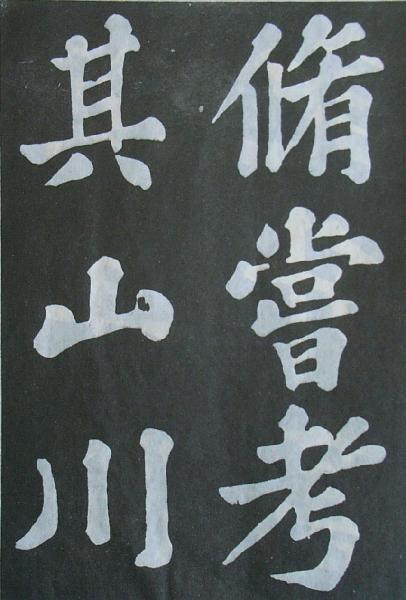 脩嘗考
其山川